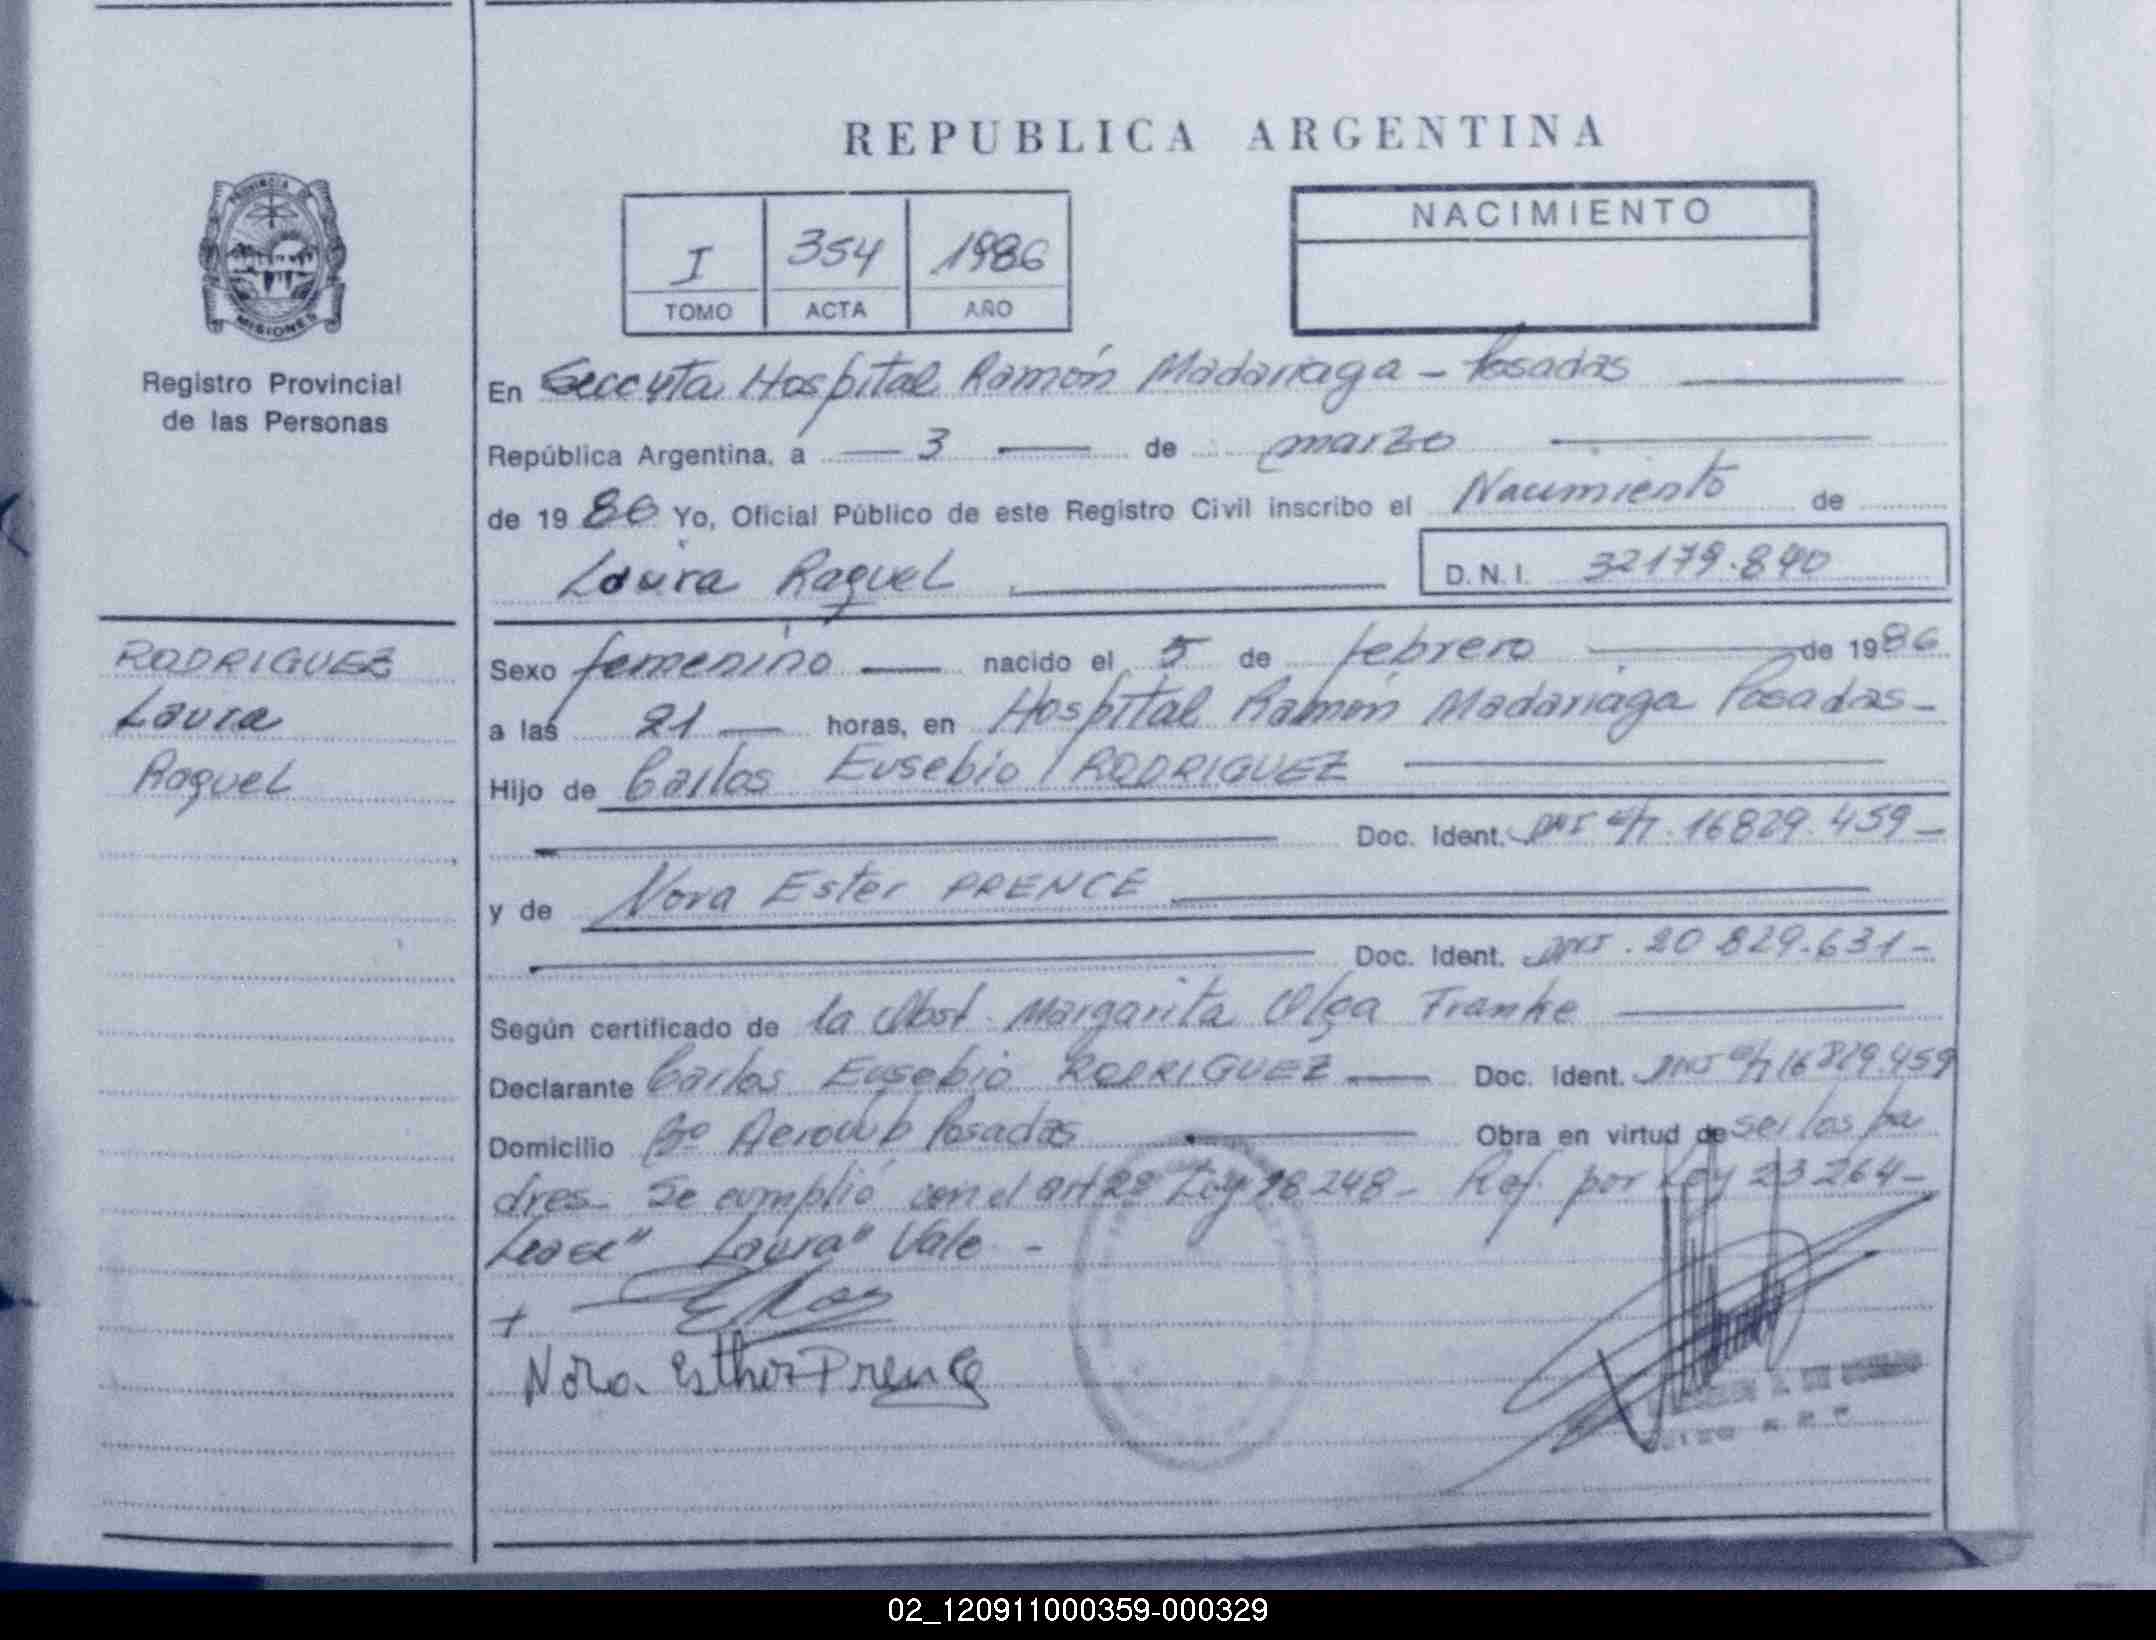 REPUBLICA ARGENTINA
PROVINCIA DE
MISIONES
Registro Provincial
de las Personas
I 354 1986
TOMO ACTA AÑO
NACIMIENTO
En Hospital Ramón Madariaga - Posadas
República Argentina, a 3 de marzo
de 1986 Yo, Oficial Público de este Registro Civil inscribo el Nacimiento de
Laura Raquel D.N.I. 32179.840
RODRIGUEZ
Laura
Raquel
Sexo femenino nacido el 5 de febrero de 1986
a las 21 horas, en Hospital Ramón Madariaga Posadas-
Hijo de Carlos Eusebio RODRIGUEZ
Doc. Ident. DNI 16829.459-
y de Nora Ester PRENCE
Doc. Ident. DNI. 20 829.631-
Según certificado de la Obst. Margarita Olga Franke
Declarante Carlos Eusebio RODRIGUEZ Doc. Ident. DNI 16829.459
Domicilio Bº Aeroclub Posadas Obra en virtud de ser los pa
dres- Se cumplió con el art 2º Ley 18.248- Ref. por Ley 23264-
Lease" Laura" Vale -
Nora Esther Prence
02_120911000359-000329